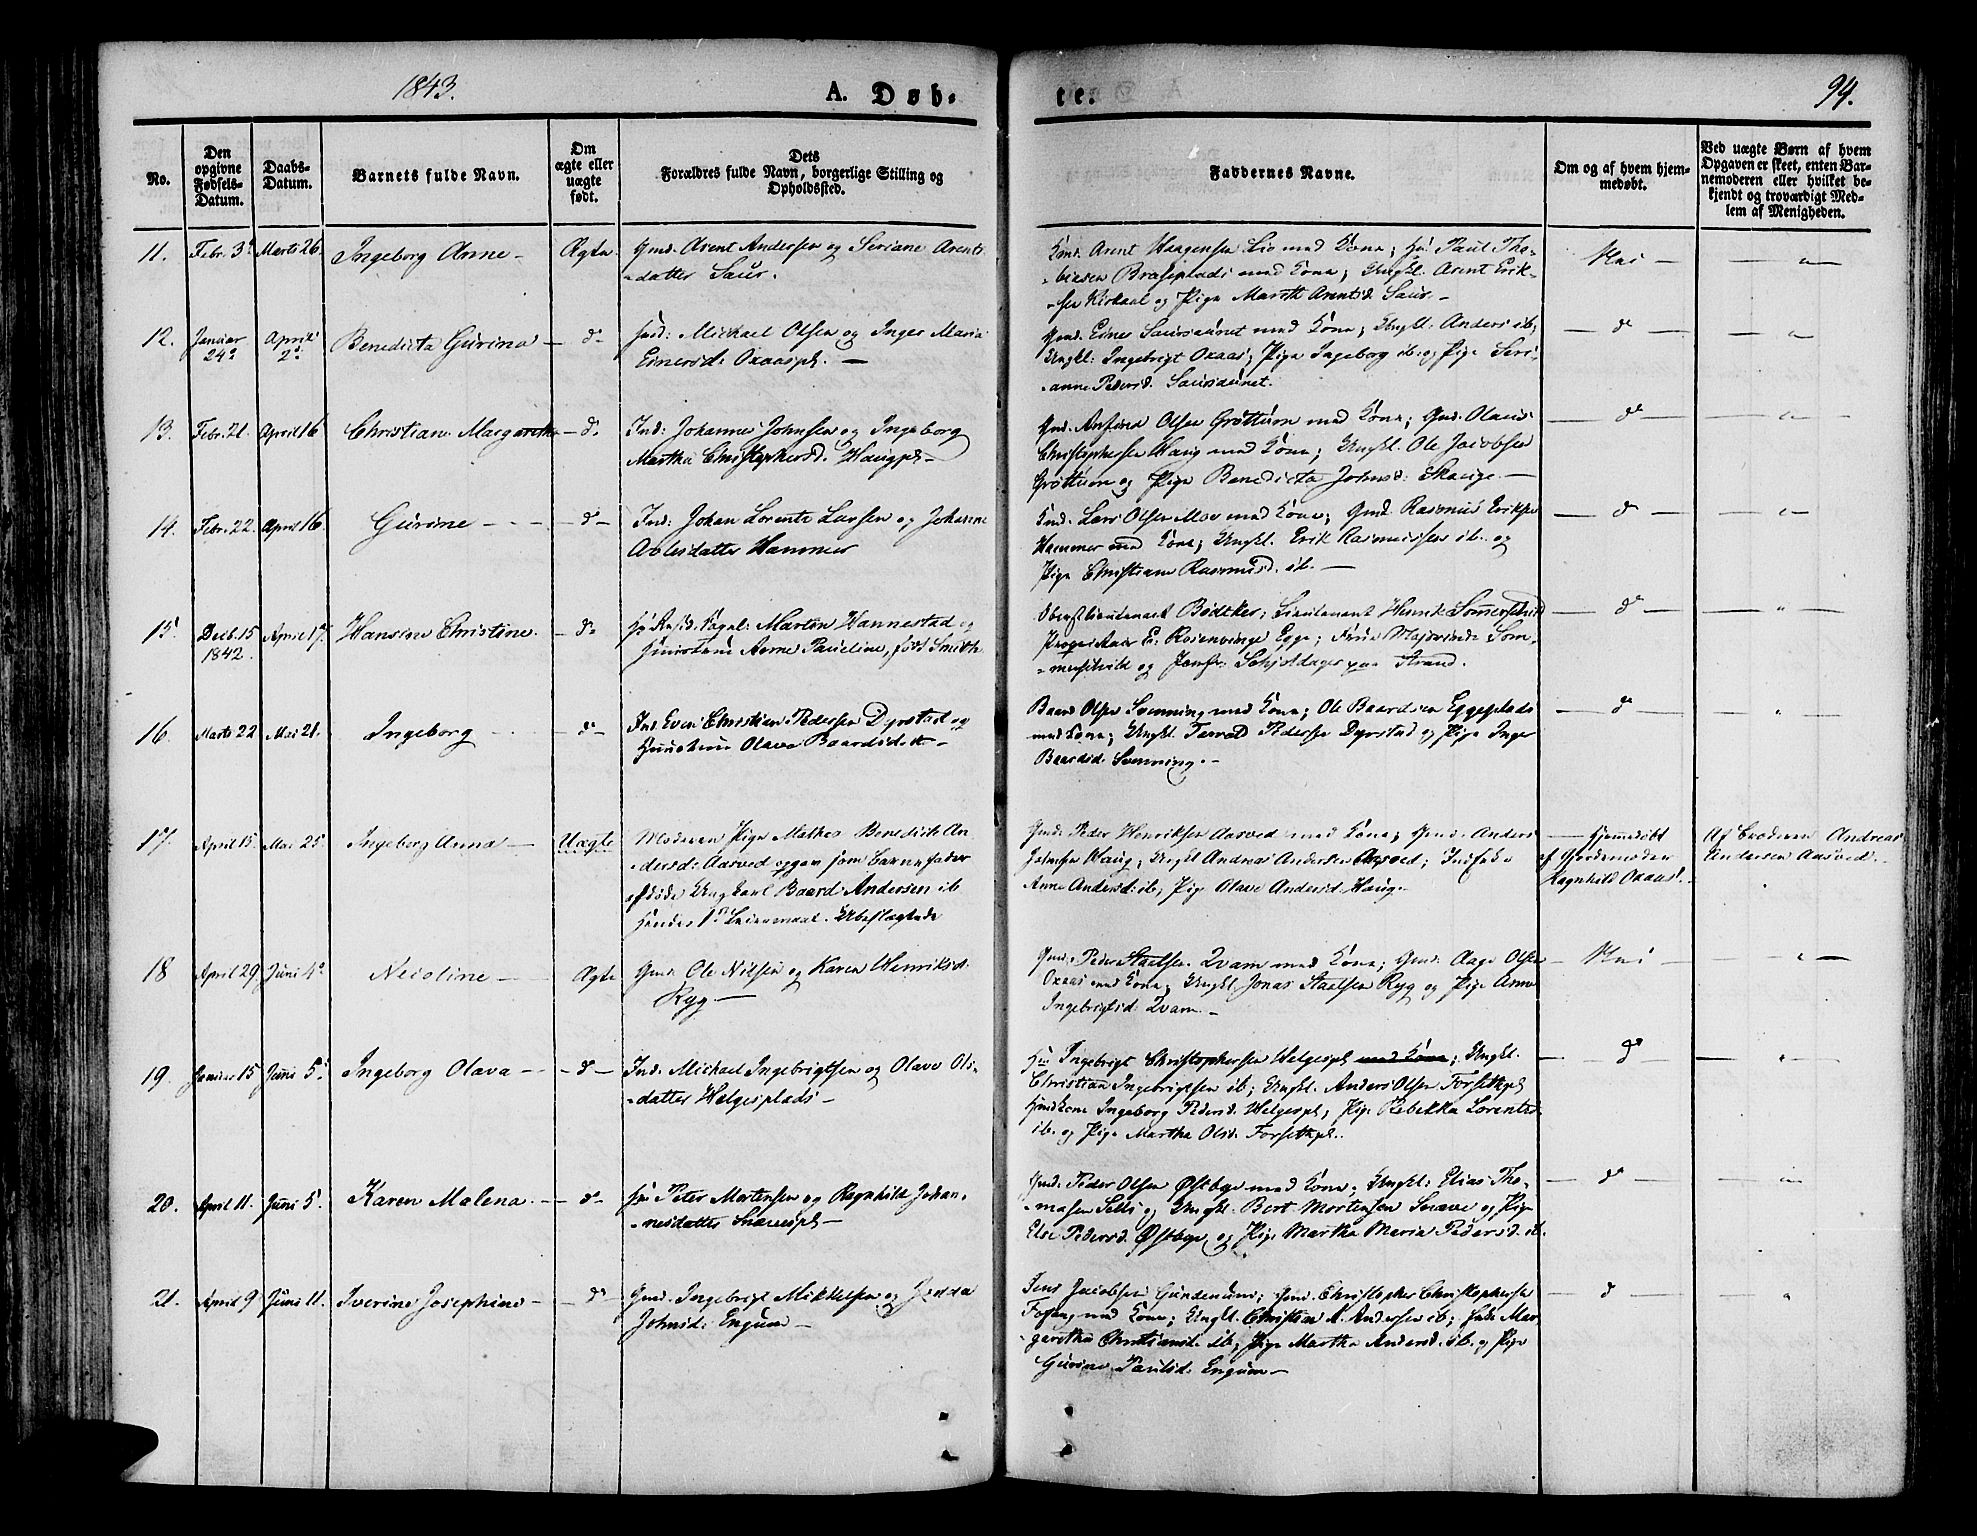 1843.
A. Døb-
te.
94.
No.
Den opgivne Fødsels-Datum.
Daabs-Datum.
Barnets fulde Navn.
Om ægte eller uægte født.
Dets
Forældres fulde Navn, borgerlige Stilling og
Opholdssted.
Faddernes Navne.
Om og af hvem hjem-
medøbt.
Ved uægte Børn af hvem
Opgaven er skeet, enten Bar-
nemoderen eller hvilket be-
kjendt og troværdigt Med-
lem af Menigheden.
11. Febr. 3d Marts 26. Ingeborg Anne - Ægte Gmd. Arent Andersen og Seriane Arents-
-datter Saur.
Gmd. Arent Haagensen Lio med Kone; Paul Tho-
-biasen Braseplads med Kone; Ungkl. Arent Erik-
-sen Kirkaal og Pige Marith Arentsd. Saur. -
Nei -
12. Januar 24de April 2d Benedicta Gurina - do Ind: Michael Olsen og Inger Maria
Einersd: Oxaaspl. -
Gmd. Einer Saursaunet med Kone; Ungkl: Anders ib;
Ungkl: Ingebrigt Oxaas; Pige Ingeborg ib. og Pige Seri-
-anne Pedersd. Saursaunet.
do
13. Febr. 21. April 16 Christiane Margaretha - do Ind: Johannes Johnsen og Ingeborg
Martha Christophersd. Haugpl. -
Gmd. Anfind Olsen Grøttum med Kone; Gmd. Olaus
Christophersen Haug med Kone; Ungkl. Ole Jacobsen
Grøttum og Pige Benedicta Johnsd: Skauge. -
do
14. Febr. 22. April 16. Gurine - do Ind: Johan Lorentz Larsen og Johanne
Aolesdatter Hammer
Gmd. Lars Olsen Moe med Kone; Gmd. Rasmus Eriksen
Hammer med Kone; Ungkl. Erik Rasmussen ib. og
Pige Christiane Rasmusd. ib. -
do
15. Decb. 15 1842. April 17. Hansine Christine. do Martin Hannestad og
Hustru Anne Pauline, født Smith.
Oberstlieutenant Bødtker; Lieutenant Henrik Sommerschield
Proprietair E. Rosenvinge Egge; Frue Majorinde Som-
-merschield og Jomfr. Schjoldager paa Strand.
do
16. Marts 22 Mai 21. Ingeborg do Ind. Even Christian Pedersen Dyrstad og
Hustrue Olava Baardsdatt. -
Baard Olsen Svenning med Kone; Ole Baardsen Eggeplads
med Kone; Ungkl. Peder Pedersen Dyrstad og Pige Inger
Baardsd. Svenning. -
do
17. April 15. Mai 25. Ingeborg Anna - Uægte Moderen Pige Mathea Benedicte An-
-dersd: Aasved opgav som Barnefader
afdøde Ungkarl Baard Andersen ib
Hendes 1ste Leiermaal. Ubeslægtede
Gmd: Peder Henriksen Aasved med Kone; Gmd. Anders
Johnsen Haug; Ungkl Andreas Andersen Aasved; Indfske
Anne Andersd: ib, Pige Olave Andersd. Haug.
Hjemmedøbt
af Gjordemoder
Ragnhild Oxaas.
Af Broderen Andreas
Andersen Aasved.
18 April 29. Juni 4de Nicoline - Ægte Gmd: Ole Nilsen og Karen Henriksd:
Ryg -
Gmd. Peder Staelsen Qvam med Kone; Gmd: Aage Olsen
Oxaas med Kone; Ungkl. Jonas Staelsen Ryg og Pige Anne
Ingebrigtsd: Qvam. -
Nei -
19. Januar 15 Juni 5. Ingeborg Olava - do Ind. Michael Ingebrigtsen og Olave Ols-
-datter Helgesplads -
Ingebrigt Christophersen Helgespl med Kone; Ungkl.
Christian Ingebrigtsen ib; Ungkl. Anders Olsen Forsethpl
Ingeborg Pedersd. Helgespl; Pige Rebekka Lorentsd.
ib. og Pige Martha Olsd. Forsethpl.
do
20. April 11. Juni 5. Karen Malena do Peter Mortensen og Ragnhild Johan-
-nesdatter Snavespl -
Gmd. Peder Olsen Østbye med Kone; Ungkl: Elias Tho-
-masen Selli og Ungkl. Bert Mortensen Snave og Pige
Else Pedersd. Østbye og Pige Martha Maria Pedersd. ib.
do
21. April 9 Juni 11. Iverine Josephine - do Gmd. Ingebrigt Mikkelsen og
Johnsd: Engum -
Jens Jacobsen Gundenum; Gmd. Christopher Christophersen
med Kone; Ungkl. Christian A. Andersen ib; Mar-
garetha Christiansd. ib; Pige Martha Andersd. ib. og Pige
Gurine Paulsd: Engum -
do